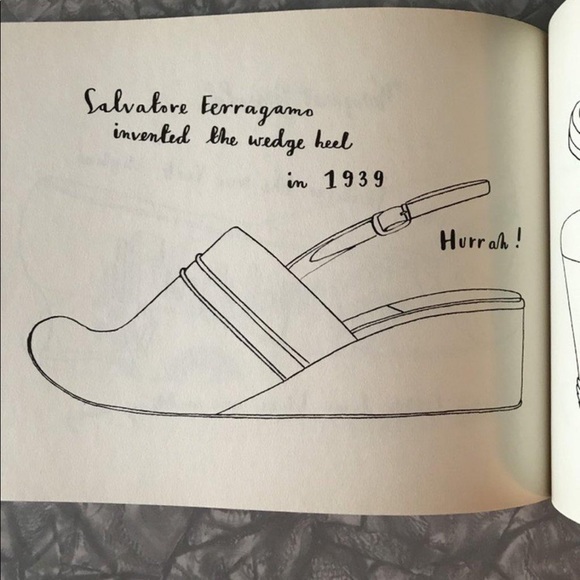 Salvatore Ferragamo
invented the wedge heel
in 1939
Hurrah!